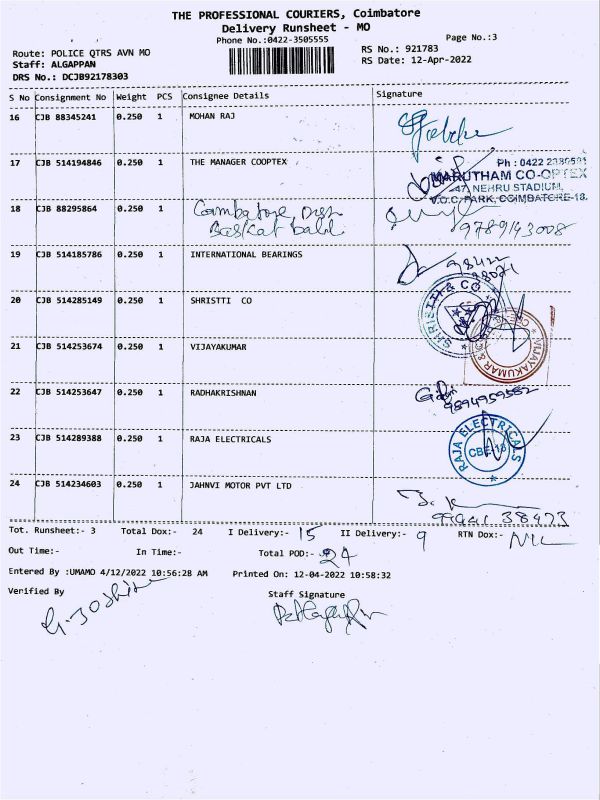 THE PROFESSIONAL COURIERS, Coimbatore
Delivery Runsheet - MO
Phone No.:0422-3505555
Page No.:3
Route: POLICE QTRS AVN MO
RS No.: 921783
Staff: ALGAPPAN
RS Date: 12-Apr-2022
DRS No.: DCJB92178303
S No Consignment No Weight PCS Consignee Details Signature
16 CJB 88345241 0.250 1 MOHAN RAJ
17 CJB 514194846 0.250 1 THE MANAGER COOPTEX
Ph : 0422 2380591
MARUTHAM CO-OPTEX
47, NEHRU STADIUM,
V.O.C. PARK, COIMBATORE-18.
18 CJB 88295864 0.250 1 Coimbatore
9789143008
19 CJB 514185786 0.250 1 INTERNATIONAL BEARINGS
98422
98071
20 CJB 514285149 0.250 1 SHRISTTI CO
SHRISTTI & CO
21 CJB 514253674 0.250 1 VIJAYAKUMAR
VIJAYAKUMAR &
22 CJB 514253647 0.250 1 RADHAKRISHNAN
9894959582
23 CJB 514289388 0.250 1 RAJA ELECTRICALS
RAJA ELECTRICALS
CBE-18
24 CJB 514234603 0.250 1 JAHNVI MOTOR PVT LTD
99941 38473
Tot. Runsheet:- 3 Total Dox:- 24 I Delivery:- 15 II Delivery:- 9 RTN Dox:- NIL
Out Time:- In Time:- Total POD:- 24
Entered By :UMAMO 4/12/2022 10:56:28 AM Printed On: 12-04-2022 10:58:32
Verified By Staff Signature